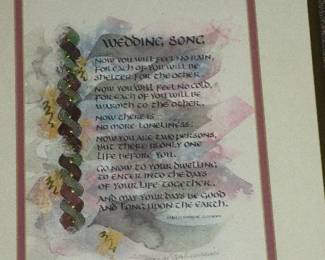 WEDDING SONG
NOW YOU WILL FEEL NO RAIN,
FOR EACH OF YOU WILL BE
SHELTER FOR THE OTHER.
NOW YOU WILL FEEL NO COLD,
FOR EACH OF YOU WILL BE
WARMTH TO THE OTHER.
NOW THERE IS
NO MORE LONELINESS.
NOW YOU ARE TWO PERSONS,
BUT THERE IS ONLY ONE
LIFE BEFORE YOU.
GO NOW TO YOUR DWELLING
TO ENTER INTO THE DAYS
OF YOUR LIFE TOGETHER.
AND MAY YOUR DAYS BE GOOD
AND LONG UPON THE EARTH.